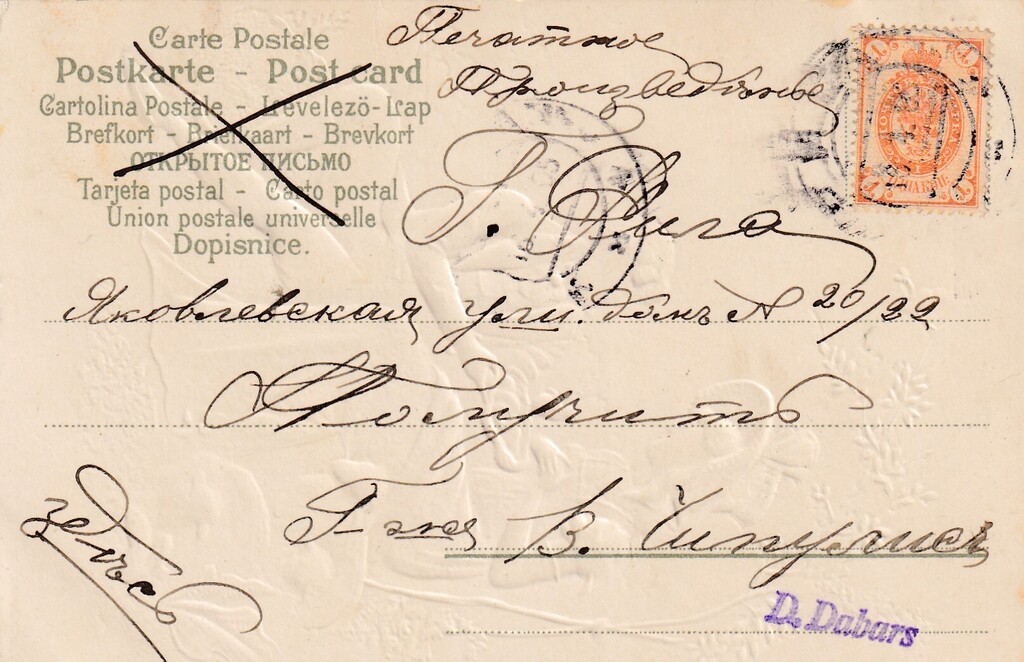 Carte Postale
Postkarte - Post card
Cartolina Postale - Levelező-Lap
Brefkort - Briefkaart - Brevkort
ОТКРЫТОЕ ПИСЬМО
Tarjeta postal - Carto postal
Union postale universelle
Dopisnice.
Печатное
Произведѣнье
Г. Рига
Яковлевская ули. домъ № 20/22
Получить
Г-жя В. Чипулисъ
здѣсь
D. Dabars